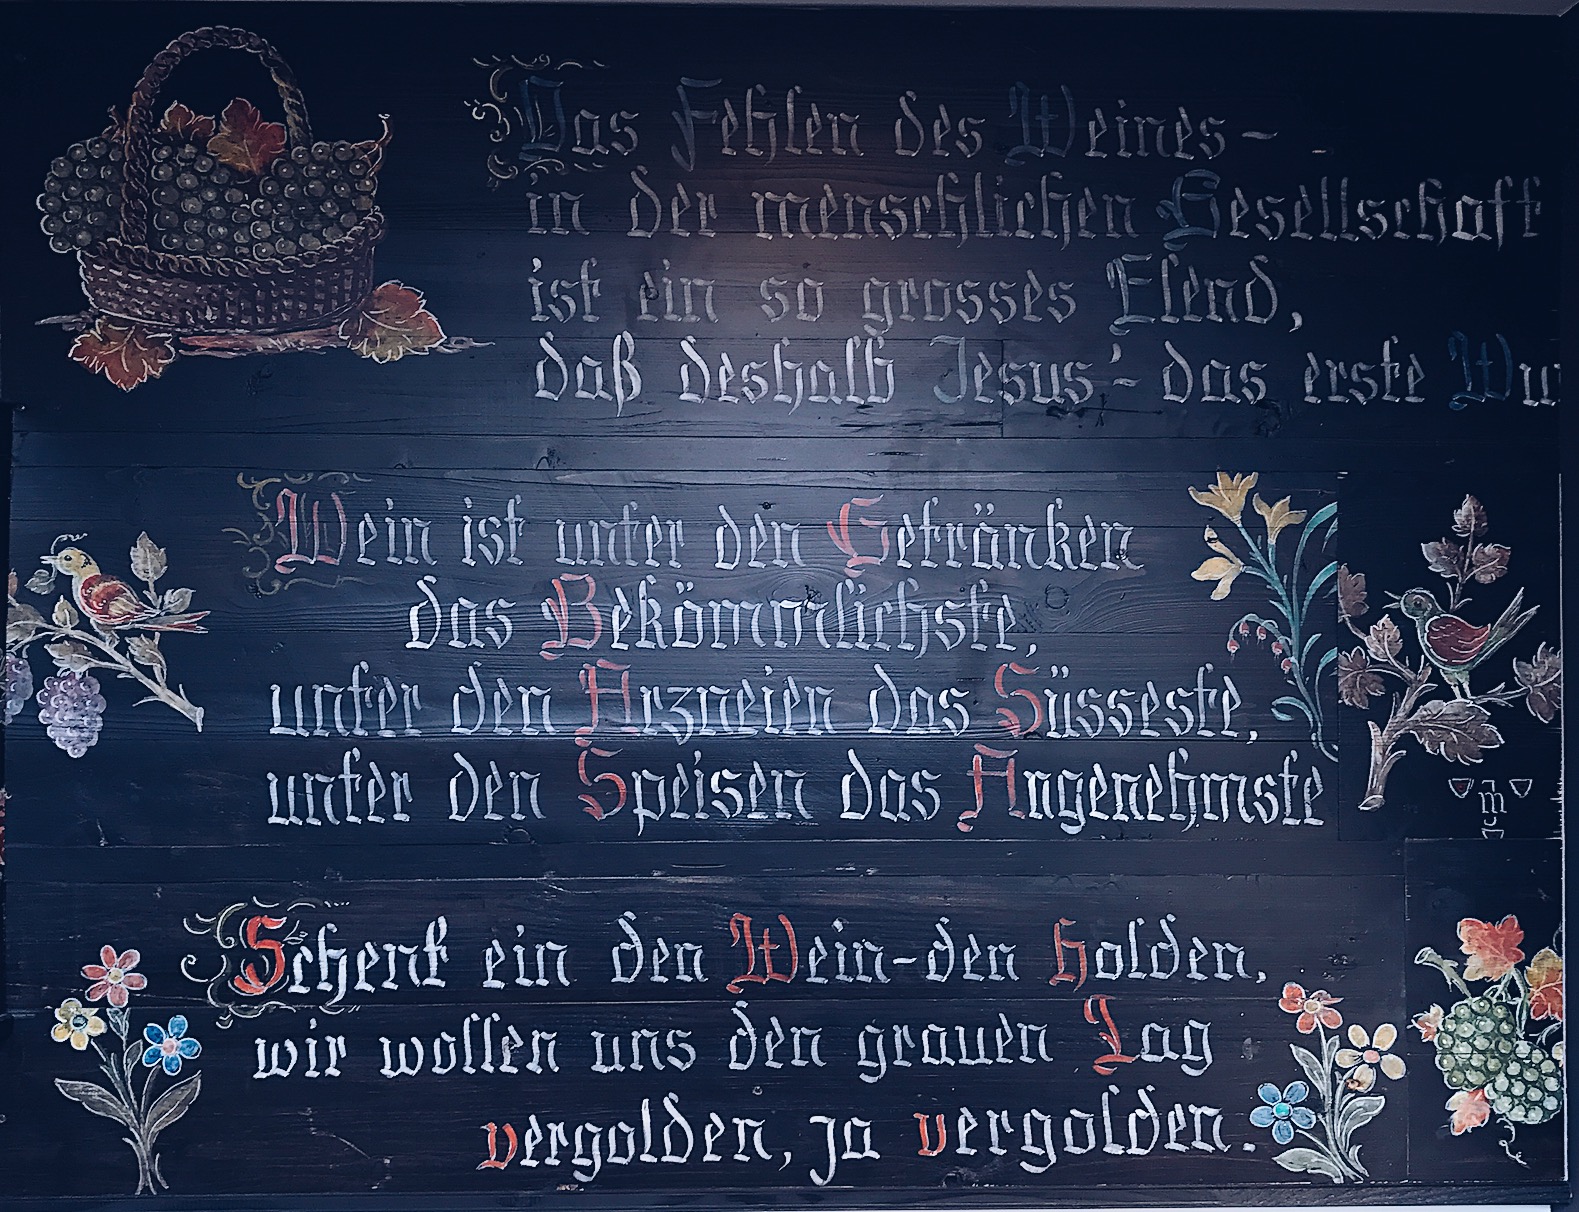 Das Fehlen des Weines -
in der menschlichen Gesellschaft
ist ein so grosses Elend,
daß deshalb Jesus' - das erste Wu
Wein ist unter den Getränken
das Bekömmlichste,
unter den Arzneien das Süsseste,
unter den Speisen das Angenehmste
Schenk ein den Wein-den holden,
wir wollen uns den grauen Tag
vergolden, ja vergolden.